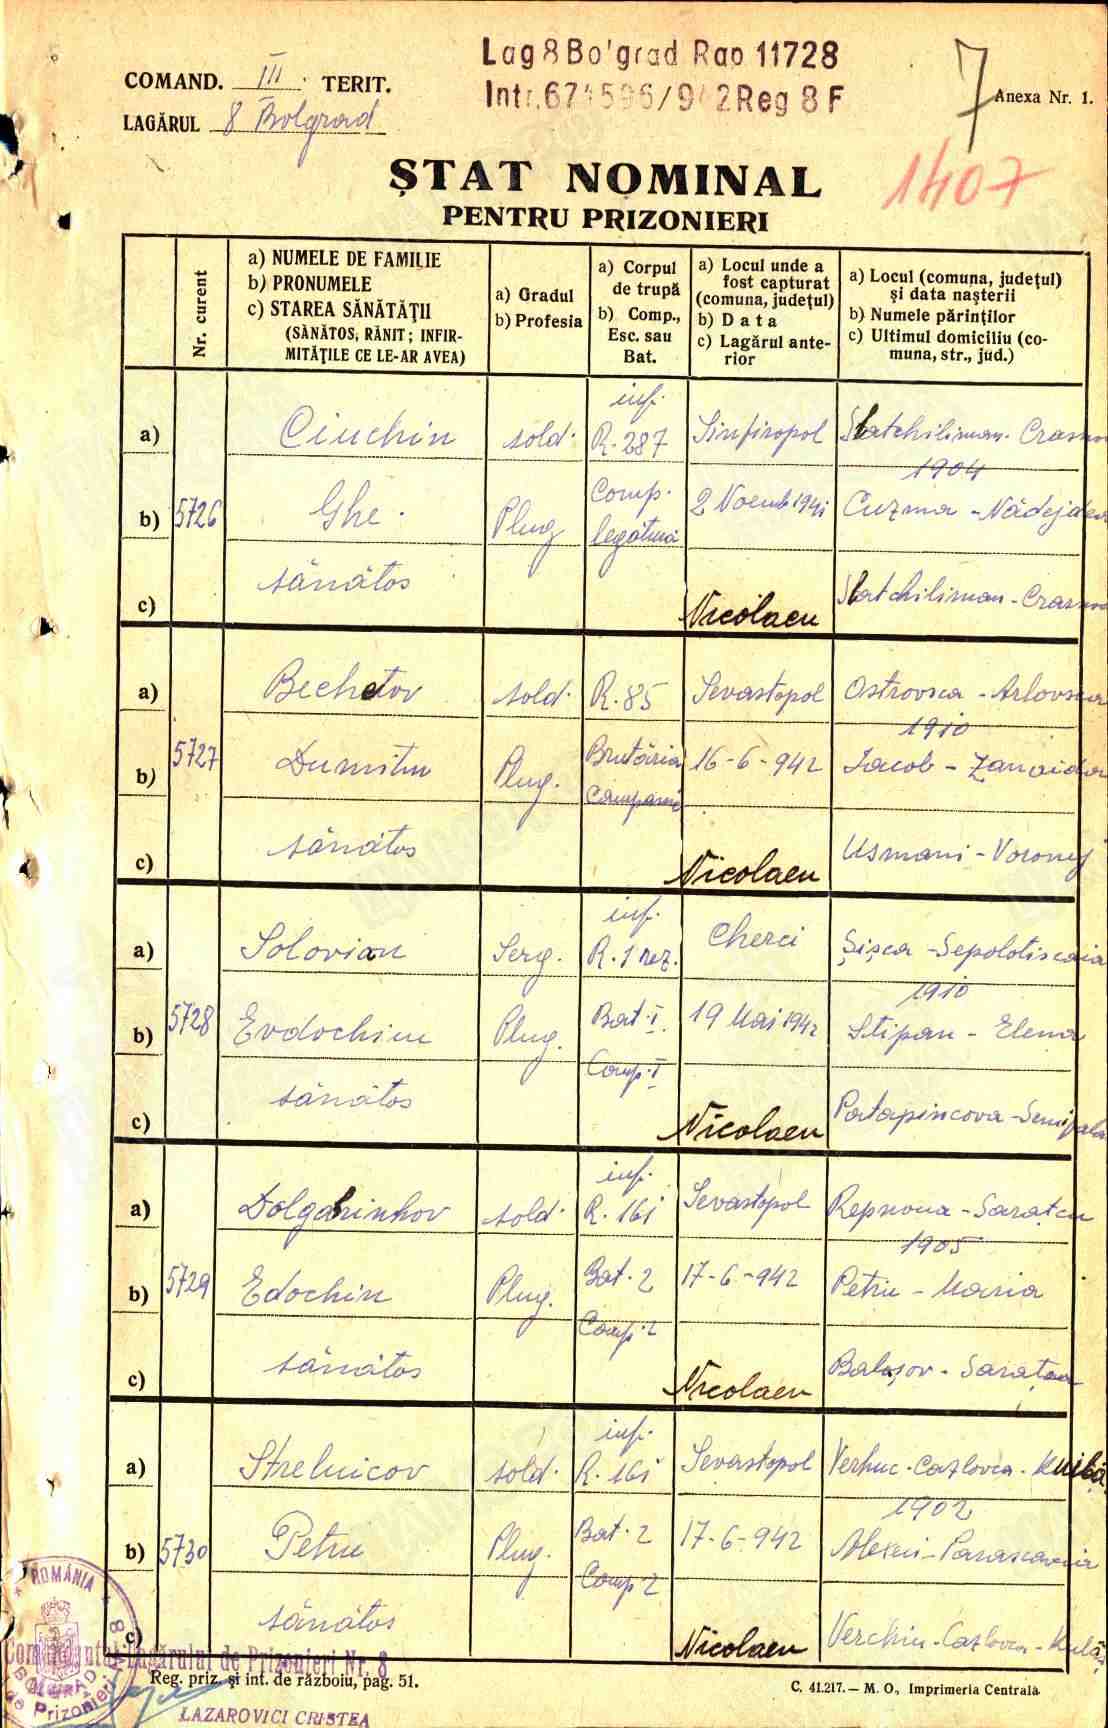 Lag 8 Bo'grad Rap 11728
Intr. 671596/942 Reg 8 F
7
COMAND. III. TERIT.
Anexa Nr. 1.
LAGĂRUL 8 Bolgrad
1407
ȘTAT NOMINAL
PENTRU PRIZONIERI
Nr. curent
a) NUMELE DE FAMILIE
b) PRONUMELE
c) STAREA SĂNĂTĂȚII
(SĂNĂTOS, RĂNIT; INFIR-
MITĂȚILE CE LE-AR AVEA)
a) Gradul
b) Profesia
a) Corpul
de trupă
b) Comp.,
Esc. sau
Bat.
a) Locul unde a
fost capturat
(comuna, județul)
b) Data
c) Lagărul ante-
rior
a) Locul (comuna, județul)
și data nașterii
b) Numele părinților
c) Ultimul domiciliu (co-
muna, str., jud.)
inf.
a) Ciuchin sold. R. 287 Simfiropol
1904
b) 5726 Ghe. Plug Comp. legătură 2 Noemb 1941 Cuzma - Nădejdea
c) sănătos Nicolaeu
a) Bechetov sold. R. 85 Sevastopol Ostrovsca - Arlovsca
1910
b) 5727 Dumitru Plug. Brutăria Companie 16-6-942 Iacob -
c) sănătos Nicolaeu Usmani - Voronej
inf.
a) Solovian Serg. R. 1 rez. Cherci Șișca - Sepolotiscaia
1910
b) 5728 Evdochim Plug. Bat. I. Comp. I 19 Mai 1942 Stipan - Elena
c) sănătos Nicolaeu Patapincova - Semipala
inf.
a) Dolgarinkov sold. R. 161 Sevastopol Repnoua - Sarațcu
1905
b) 5729 Edochim Plug. Bat. 2 Comp. 2 17-6-942 Petru - Maria
c) sănătos Nicolaeu Balașov - Sarațcu
inf.
a) Strelnicov sold. R. 161 Sevastopol Verhuc. Cazlovca -
1902
b) 5730 Petru Plug. Bat. 2 Comp 2 17-6-942 Alexei - Parascovia
c) sănătos Nicolaeu Verchiu - Cazlovca -
ROMÂNIA
Comandantul Lagărului de Prizonieri Nr. 8
Reg. priz. și int. de războiu, pag. 51.
C. 41.217.— M. O., Imprimeria Centrală
LAZAROVICI CRISTEA